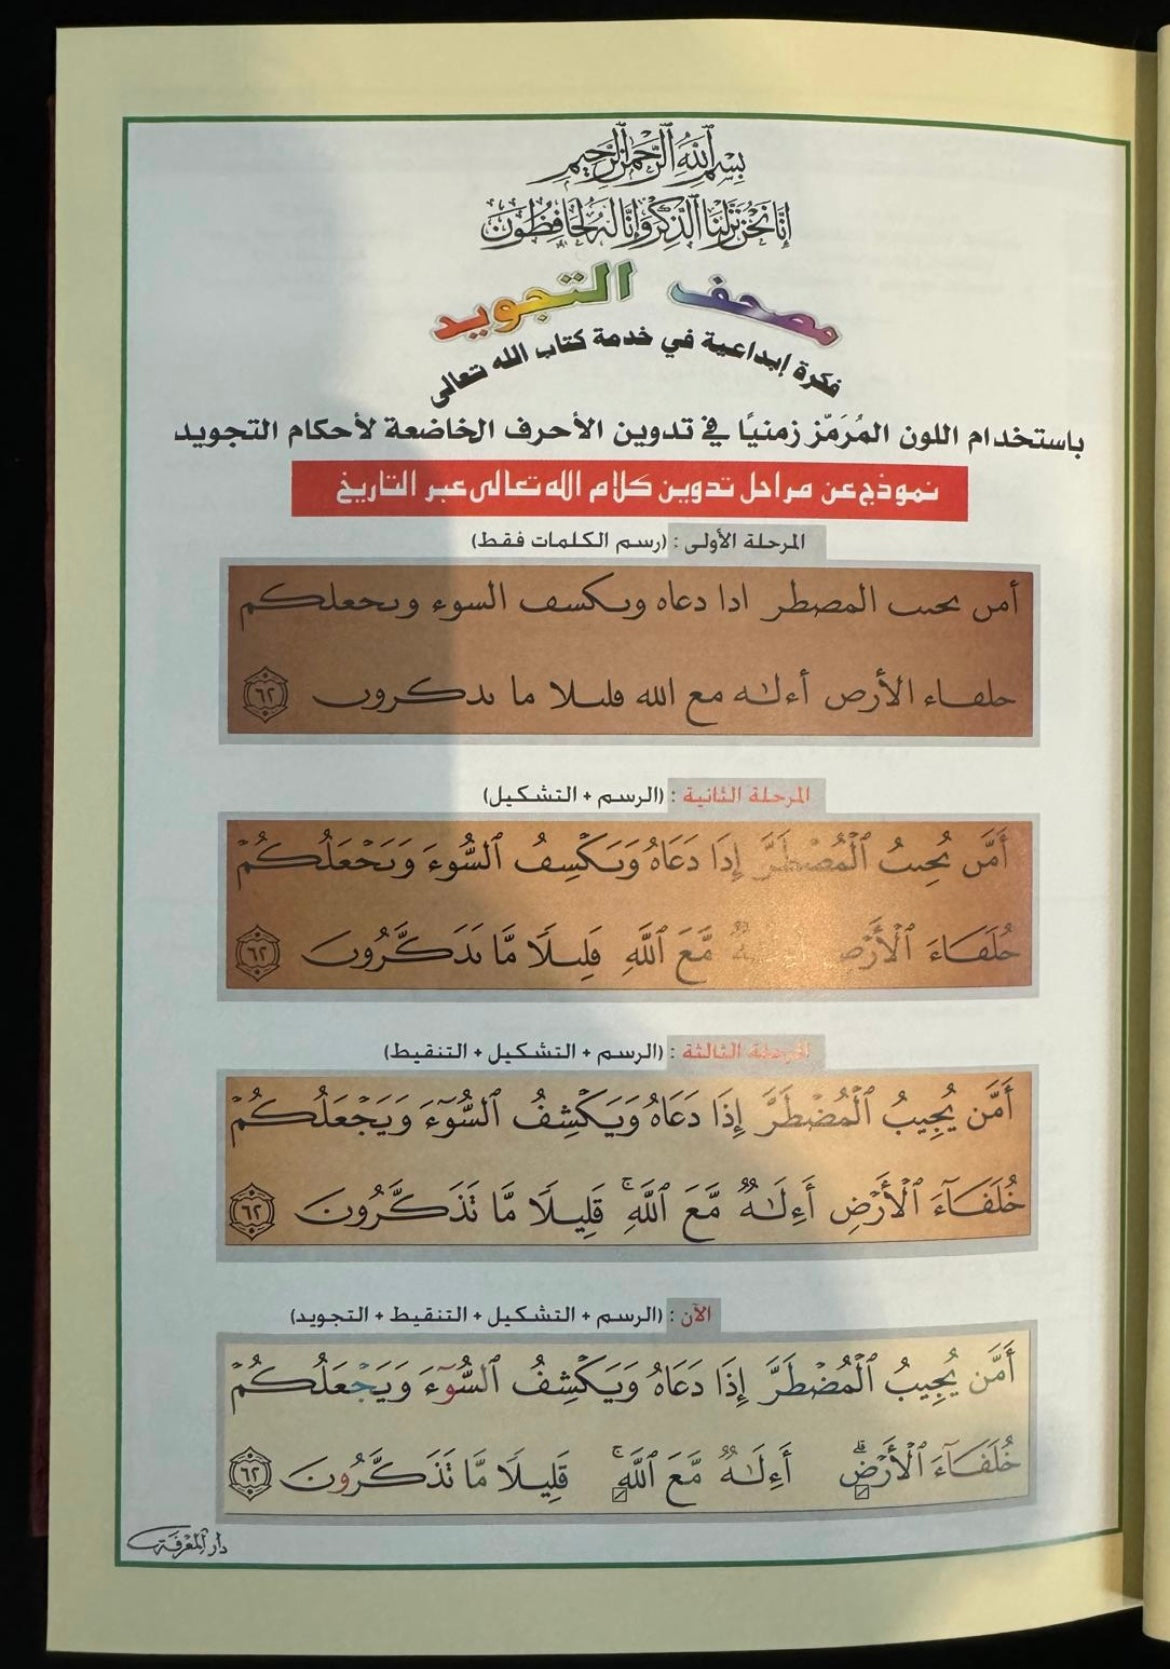 بِسْمِ اللَّهِ الرَّحْمَٰنِ الرَّحِيمِ
إِنَّا نَحْنُ نَزَّلْنَا الذِّكْرَ وَإِنَّا لَهُ لَحَافِظُونَ
مصحف التجويد
فكرة إبداعية في خدمة كتاب الله تعالى
باستخدام اللون المُرَمّز زمنيًا في تدوين الأحرف الخاضعة لأحكام التجويد
نموذج عن مراحل تدوين كلام الله تعالى عبر التاريخ
المرحلة الأولى : (رسم الكلمات فقط)
أمں ٮحٮٮ المصطر ادا دعاه وٮكسڡ السوء وٮحعلكم
حلڡاء الأرص أءلٰه مع الله ڡلٮلا ما ٮدكروں ٦٢
المرحلة الثانية : (الرسم + التشكيل)
أَمَّں ٮُحِٮٮُ ٱلْمُصْطَرَّ إِدَا دَعَاهُ وَٮَكْسِڡُ ٱلسُّوءَ وَٮَحْعَلُكُمْ
حُلَڡَاءَ ٱلْأَرْصِ مَّعَ ٱللَّهِ ڡَلِٮلًا مَّا ٮَدَكَّرُوںَ ٦٢
المرحلة الثالثة : (الرسم + التشكيل + التنقيط)
أَمَّن يُجِيبُ ٱلْمُضْطَرَّ إِذَا دَعَاهُ وَيَكْشِفُ ٱلسُّوٓءَ وَيَجْعَلُكُمْ
خُلَفَآءَ ٱلْأَرْضِ أَءِلَٰهٌ مَّعَ ٱللَّهِ ۚ قَلِيلًا مَّا تَذَكَّرُونَ ٦٢
الآن : (الرسم + التشكيل + التنقيط + التجويد)
أَمَّن يُجِيبُ ٱلْمُضْطَرَّ إِذَا دَعَاهُ وَيَكْشِفُ ٱلسُّوٓءَ وَيَجْعَلُكُمْ
خُلَفَآءَ ٱلْأَرْضِ ۗ أَءِلَٰهٌ مَّعَ ٱللَّهِ ۚ قَلِيلًا مَّا تَذَكَّرُونَ ٦٢
دار المعرفة